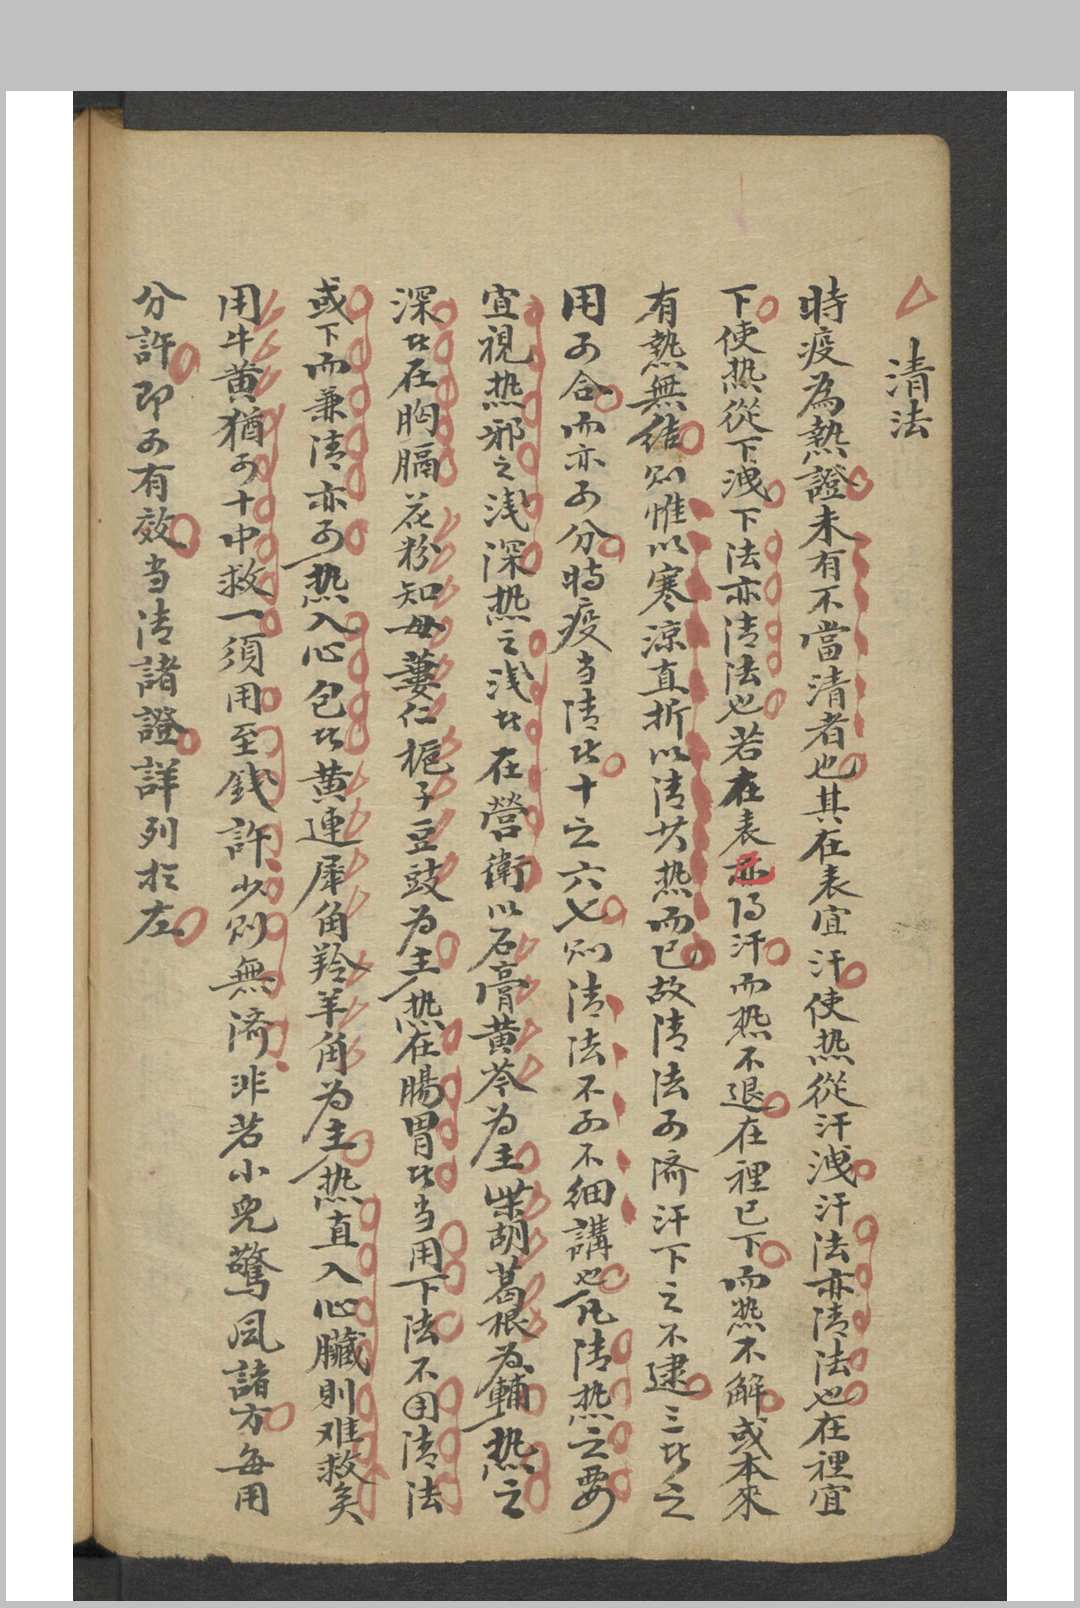 清法
時疫為熱證未有不當清者也其在表宜汗使热從汗洩汗法亦清法也在裡宜
下使热從下洩下法亦清法也若在表已得汗而热不退在裡已下而热不解或本來
有熱無結则惟以寒涼直折以清其热而已故清法可济汗下之不逮三者之
用可合而亦可分時疫当清者十之六七则清法不可不細講也凡清热之要
宜視热邪之浅深热之浅者在營衛以石膏黄芩为主柴胡葛根为輔热之
深者在胸膈花粉知母蔞仁梔子豆豉为主热在腸胃者当用下法不用清法
或下而兼清亦可热入心包者黄連犀角羚羊角为主热直入心臓則难救矣
用牛黄犹可十中救一須用至錢許少则無济非若小兒驚风諸方每用
分許即可有效当清諸證詳列於左